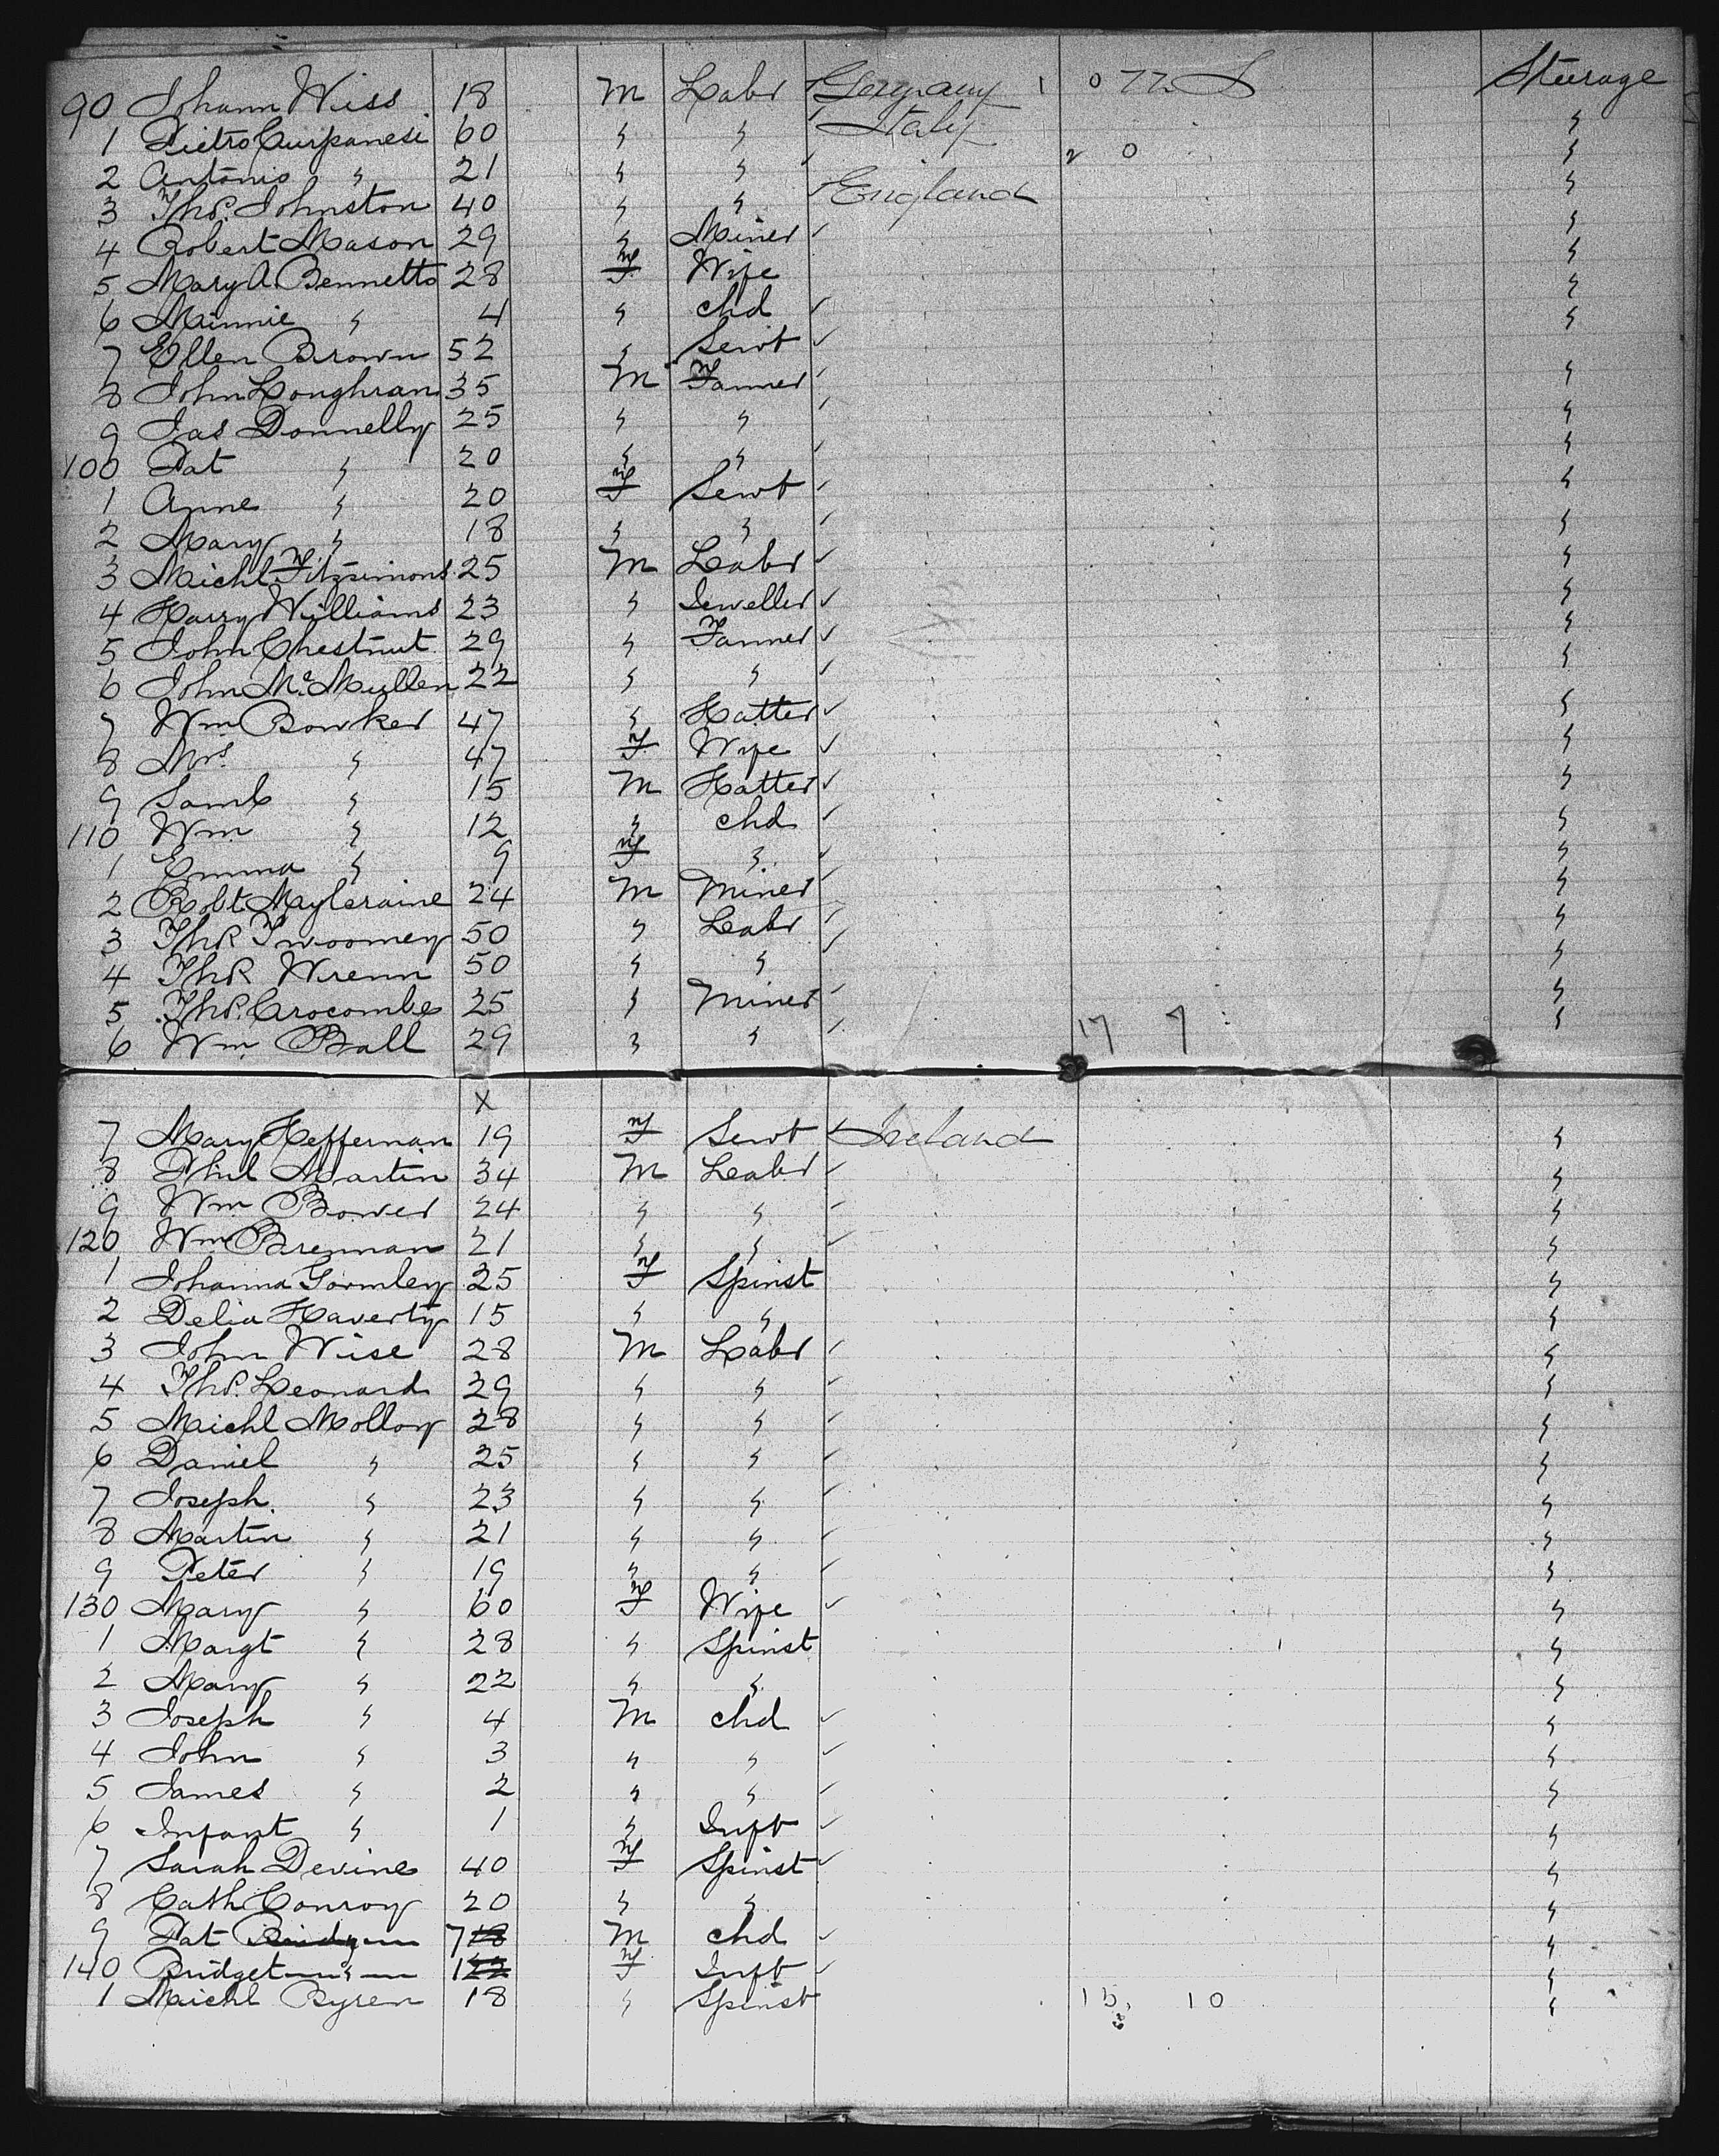 90 Johann Wiss 18 M Labr Germany 1 0 Steerage
1 Pietro 60 " " Italy "
2 Antonio " 21 " " 2 0 "
3 Thos. Johnston 40 " " England "
4 Robert Mason 29 " Miner "
5 Mary A. Bennetts 28 F Wife "
6 Minnie " 4 " chd "
7 Ellen Brown 52 " Servt "
8 John Loughran 35 M Farmer "
9 Jas Donnelly 25 " " "
100 Pat " 20 " " "
1 Anne " 20 F Servt "
2 Mary " 18 " " "
3 Michl Fitzsimons 25 M Labr "
4 Harry Williams 23 " Jeweller "
5 John Chestnut 29 " Farmer "
6 John McMullen 22 " " "
7 Wm Bowker 47 " Hatter "
8 Mrs. " 47 F Wife "
9 Saml " 15 M Hatter "
110 Wm " 12 " chd "
1 Emma " 9 F " "
2 Robt 24 M Miner "
3 Thos Twoomey 50 " Labr "
4 Thos Wrenn 50 " " "
5 Thos. Crocombe 25 " Miner "
6 Wm Ball 29 " " 17 7 "
X
7 Mary Heffernan 19 F Servt Ireland "
8 Phil Martin 34 M Labr "
9 Wm Bower 24 " " "
120 Wm Brennan 21 " " "
1 Johanna Gormley 25 F Spinst "
2 Delia Haverty 15 " " "
3 John Wise 28 M Labr "
4 Thos. Leonard 29 " " "
5 Michl Molloy 28 " " "
6 Daniel " 25 " " "
7 Joseph " 23 " " "
8 Martin " 21 " " "
9 Peter " 19 " " "
130 Mary " 60 F Wife "
1 Margt " 28 " Spinst "
2 Mary " 22 " " "
3 Joseph " 4 M chd "
4 John " 3 " " "
5 James " 2 " " "
6 Infant " 1 " Inft "
7 Sarah Devine 40 F Spinst "
8 Cath Conroy 20 " " "
9 Pat 7 M chd "
140 Bridget " 1 F Inft "
1 Michl Byren 18 " Spinst 15 10 "